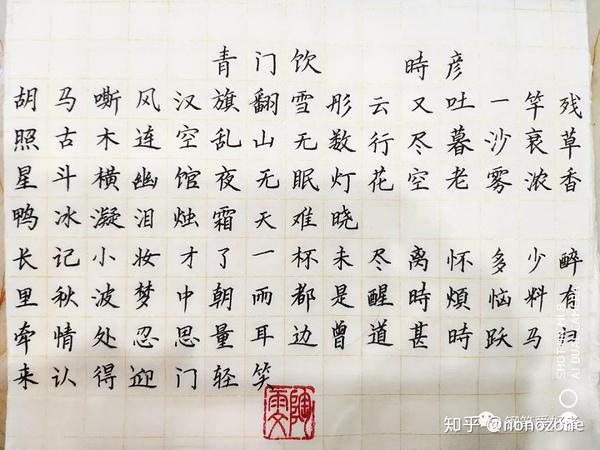 青门饮 時彦
胡马嘶风汉旗翻雪彤云又吐一竿残
照古木连空乱山无数行尽暮沙衰草
星斗横幽馆夜无眠灯花空老雾浓香
鸭冰凝泪烛霜天难晓
长记小妆才了一杯未尽离怀多少醉
里秋波梦中朝而都是醒時煩恼料有
牵情处忍思量耳边曾道甚時跃马归
来认得迎门轻笑
SHOT ON MI
AI DUAL CAMERA
钢笔爱好者
知乎 @nonozone